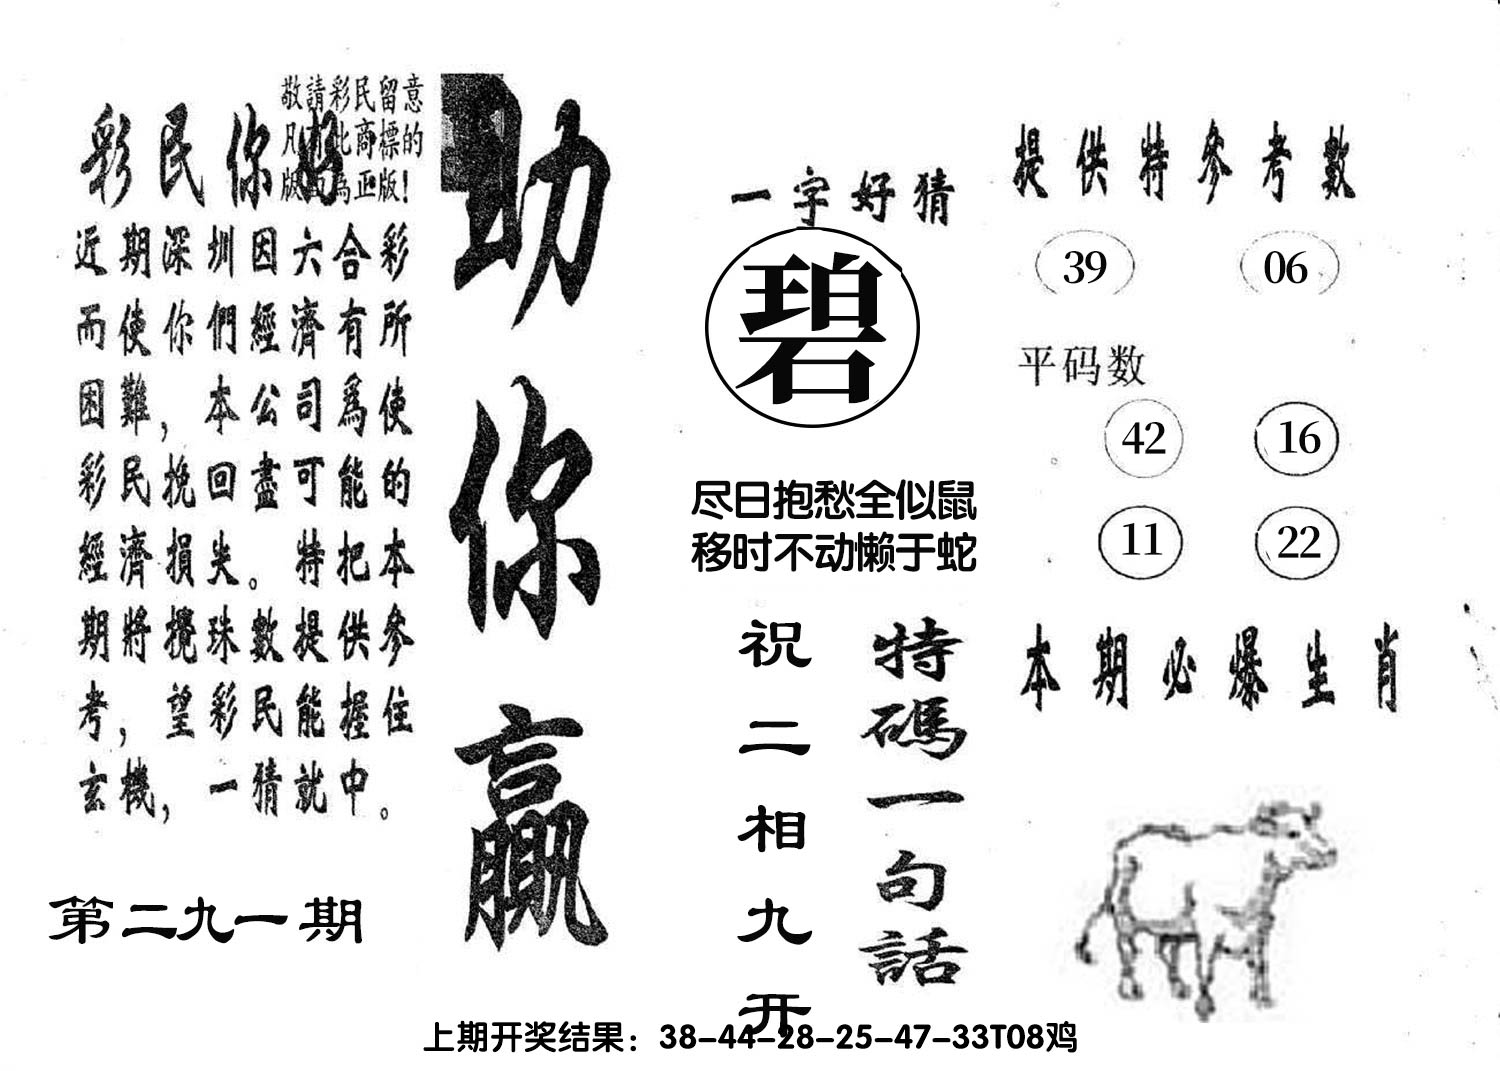 敬請彩民留意
凡有此商標的
版面為正版！
彩民你好
近期深圳因六合彩
而使你們經濟有所
困難，本公司爲使
彩民挽回盡可能的
經濟損失。特把本
期將攪珠數提供參
考，望彩民能握住
玄機，一猜就中。
第二九一期
助你贏
一字好猜
碧
尽日抱愁全似鼠
移时不动懒于蛇
特碼一句話
祝二相九开
提供特參考數
39 06
平码数
42 16
11 22
本期必爆生肖
上期开奖结果：38-44-28-25-47-33T08鸡